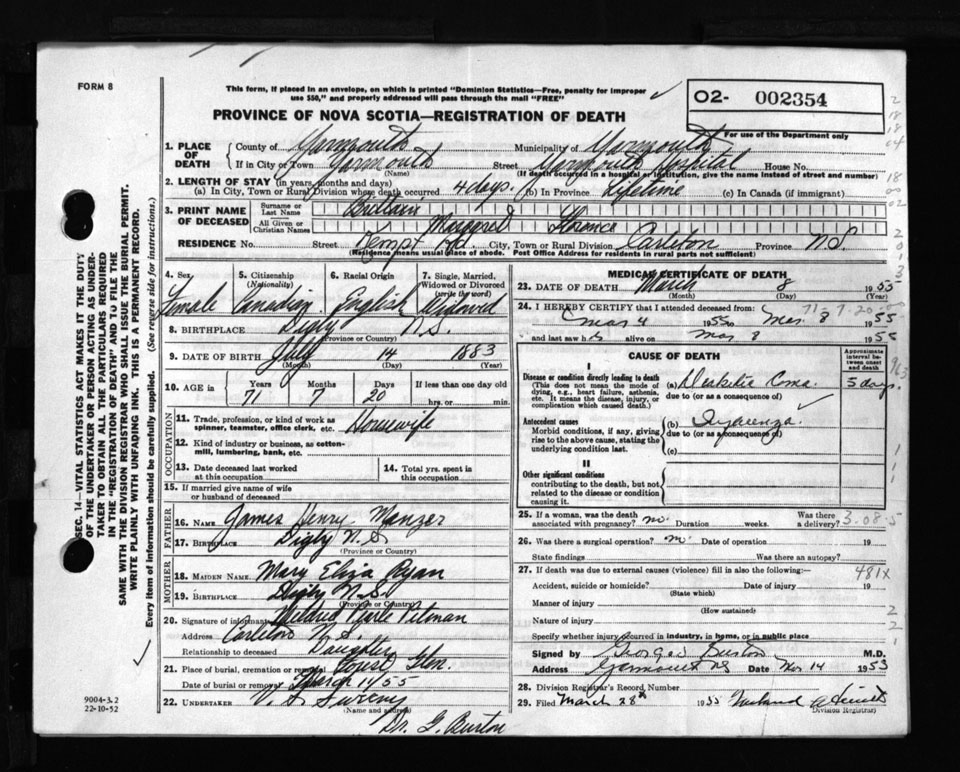 FORM 8
This form, if placed in an envelope, on which is printed "Dominion Statistics—Free, penalty for improper
use $50," and properly addressed will pass through the mail "FREE"
O2- 002354
PROVINCE OF NOVA SCOTIA—REGISTRATION OF DEATH
For use of the Department only
1. PLACE OF DEATH
County of Yarmouth Municipality of Yarmouth
If in City or Town Yarmouth Street Yarmouth Hospital House No.
(Name) (If death occurred in a hospital or institution, give the name instead of street and number)
2. LENGTH OF STAY (in years, months and days)
(a) In City, Town or Rural Division where death occurred 4 days. (b) In Province Lifetime (c) In Canada (if immigrant)
3. PRINT NAME OF DECEASED
Surname or Last Name Brittain
All Given or Christian Names Margaret Florence
RESIDENCE No. Street Kempt Rd. City, Town or Rural Division Carleton Province N.S.
(Residence means usual place of abode. Post Office Address for residents in rural parts not sufficient)
4. Sex Female
5. Citizenship (Nationality) Canadian
6. Racial Origin English
7. Single, Married, Widowed or Divorced (write the word) Widowed
8. BIRTHPLACE Digby N.S.
(Province or Country)
9. DATE OF BIRTH July 14 1883
(Month) (Day) (Year)
10. AGE in Years 71 Months 7 Days 20 If less than one day old hrs. or min.
OCCUPATION
11. Trade, profession, or kind of work as spinner, teamster, office clerk, etc. Housewife
12. Kind of industry or business, as cotton-mill, lumbering, bank, etc.
13. Date deceased last worked at this occupation
14. Total yrs. spent in this occupation
15. If married give name of wife or husband of deceased
FATHER
16. NAME James Henry Manzer
17. BIRTHPLACE Digby N.S
(Province or Country)
MOTHER
18. MAIDEN NAME Mary Eliza Ryan
19. BIRTHPLACE Digby N.S.
(Province or Country)
20. Signature of informant Mildred Pitman
Address Carleton N.S.
Relationship to deceased Daughter
21. Place of burial, cremation or removal Forest Glen.
Date of burial or removal March 11/55
22. UNDERTAKER V. S. Sweeny
(Name and address)
Dr. G. Burton
MEDICAL CERTIFICATE OF DEATH
23. DATE OF DEATH March 8 1955
(Month) (Day) (Year)
24. I HEREBY CERTIFY that I attended deceased from:
71-7-20
Mar 4 1955 to Mar. 8 1955
and last saw h alive on Mar 8 1955
CAUSE OF DEATH
Approximate interval between onset and death
I
Disease or condition directly leading to death
(This does not mean the mode of dying, e.g., heart failure, asthenia, etc. It means the disease, injury, or complication which caused death.)
(a) Diabetic Coma. 5 days.
due to (or as a consequence of)
Antecedent causes
Morbid conditions, if any, giving rise to the above cause, stating the underlying condition last.
(b) Influenza.
due to (or as a consequence of)
(c)
II
Other significant conditions
contributing to the death, but not related to the disease or condition causing it.
25. If a woman, was the death associated with pregnancy? no. Duration weeks. Was there a delivery?
3-08-5
26. Was there a surgical operation? no Date of operation 19
State findings Was there an autopsy?
27. If death was due to external causes (violence) fill in also the following:—
481X
Accident, suicide or homicide? Date of injury 19
(State which)
Manner of injury
(How sustained)
Nature of injury
Specify whether injury occurred in industry, in home, or in public place
Signed by George Burton M.D.
Address Yarmouth NS Date Mar 14 1953
28. Division Registrar's Record Number
29. Filed March 28th 1955
Division Registrar
SEC. 14—VITAL STATISTICS ACT MAKES IT THE DUTY
OF THE UNDERTAKER OR PERSON ACTING AS UNDER-
TAKER TO OBTAIN ALL THE PARTICULARS REQUIRED
IN THE "REGISTRATION OF DEATH" AND TO FILE THE
SAME WITH THE DIVISION REGISTRAR WHO SHALL ISSUE THE BURIAL PERMIT.
WRITE PLAINLY WITH UNFADING INK. THIS IS A PERMANENT RECORD.
Every item of information should be carefully supplied. (See reverse side for instructions.)
9004-3.2
22-10-52